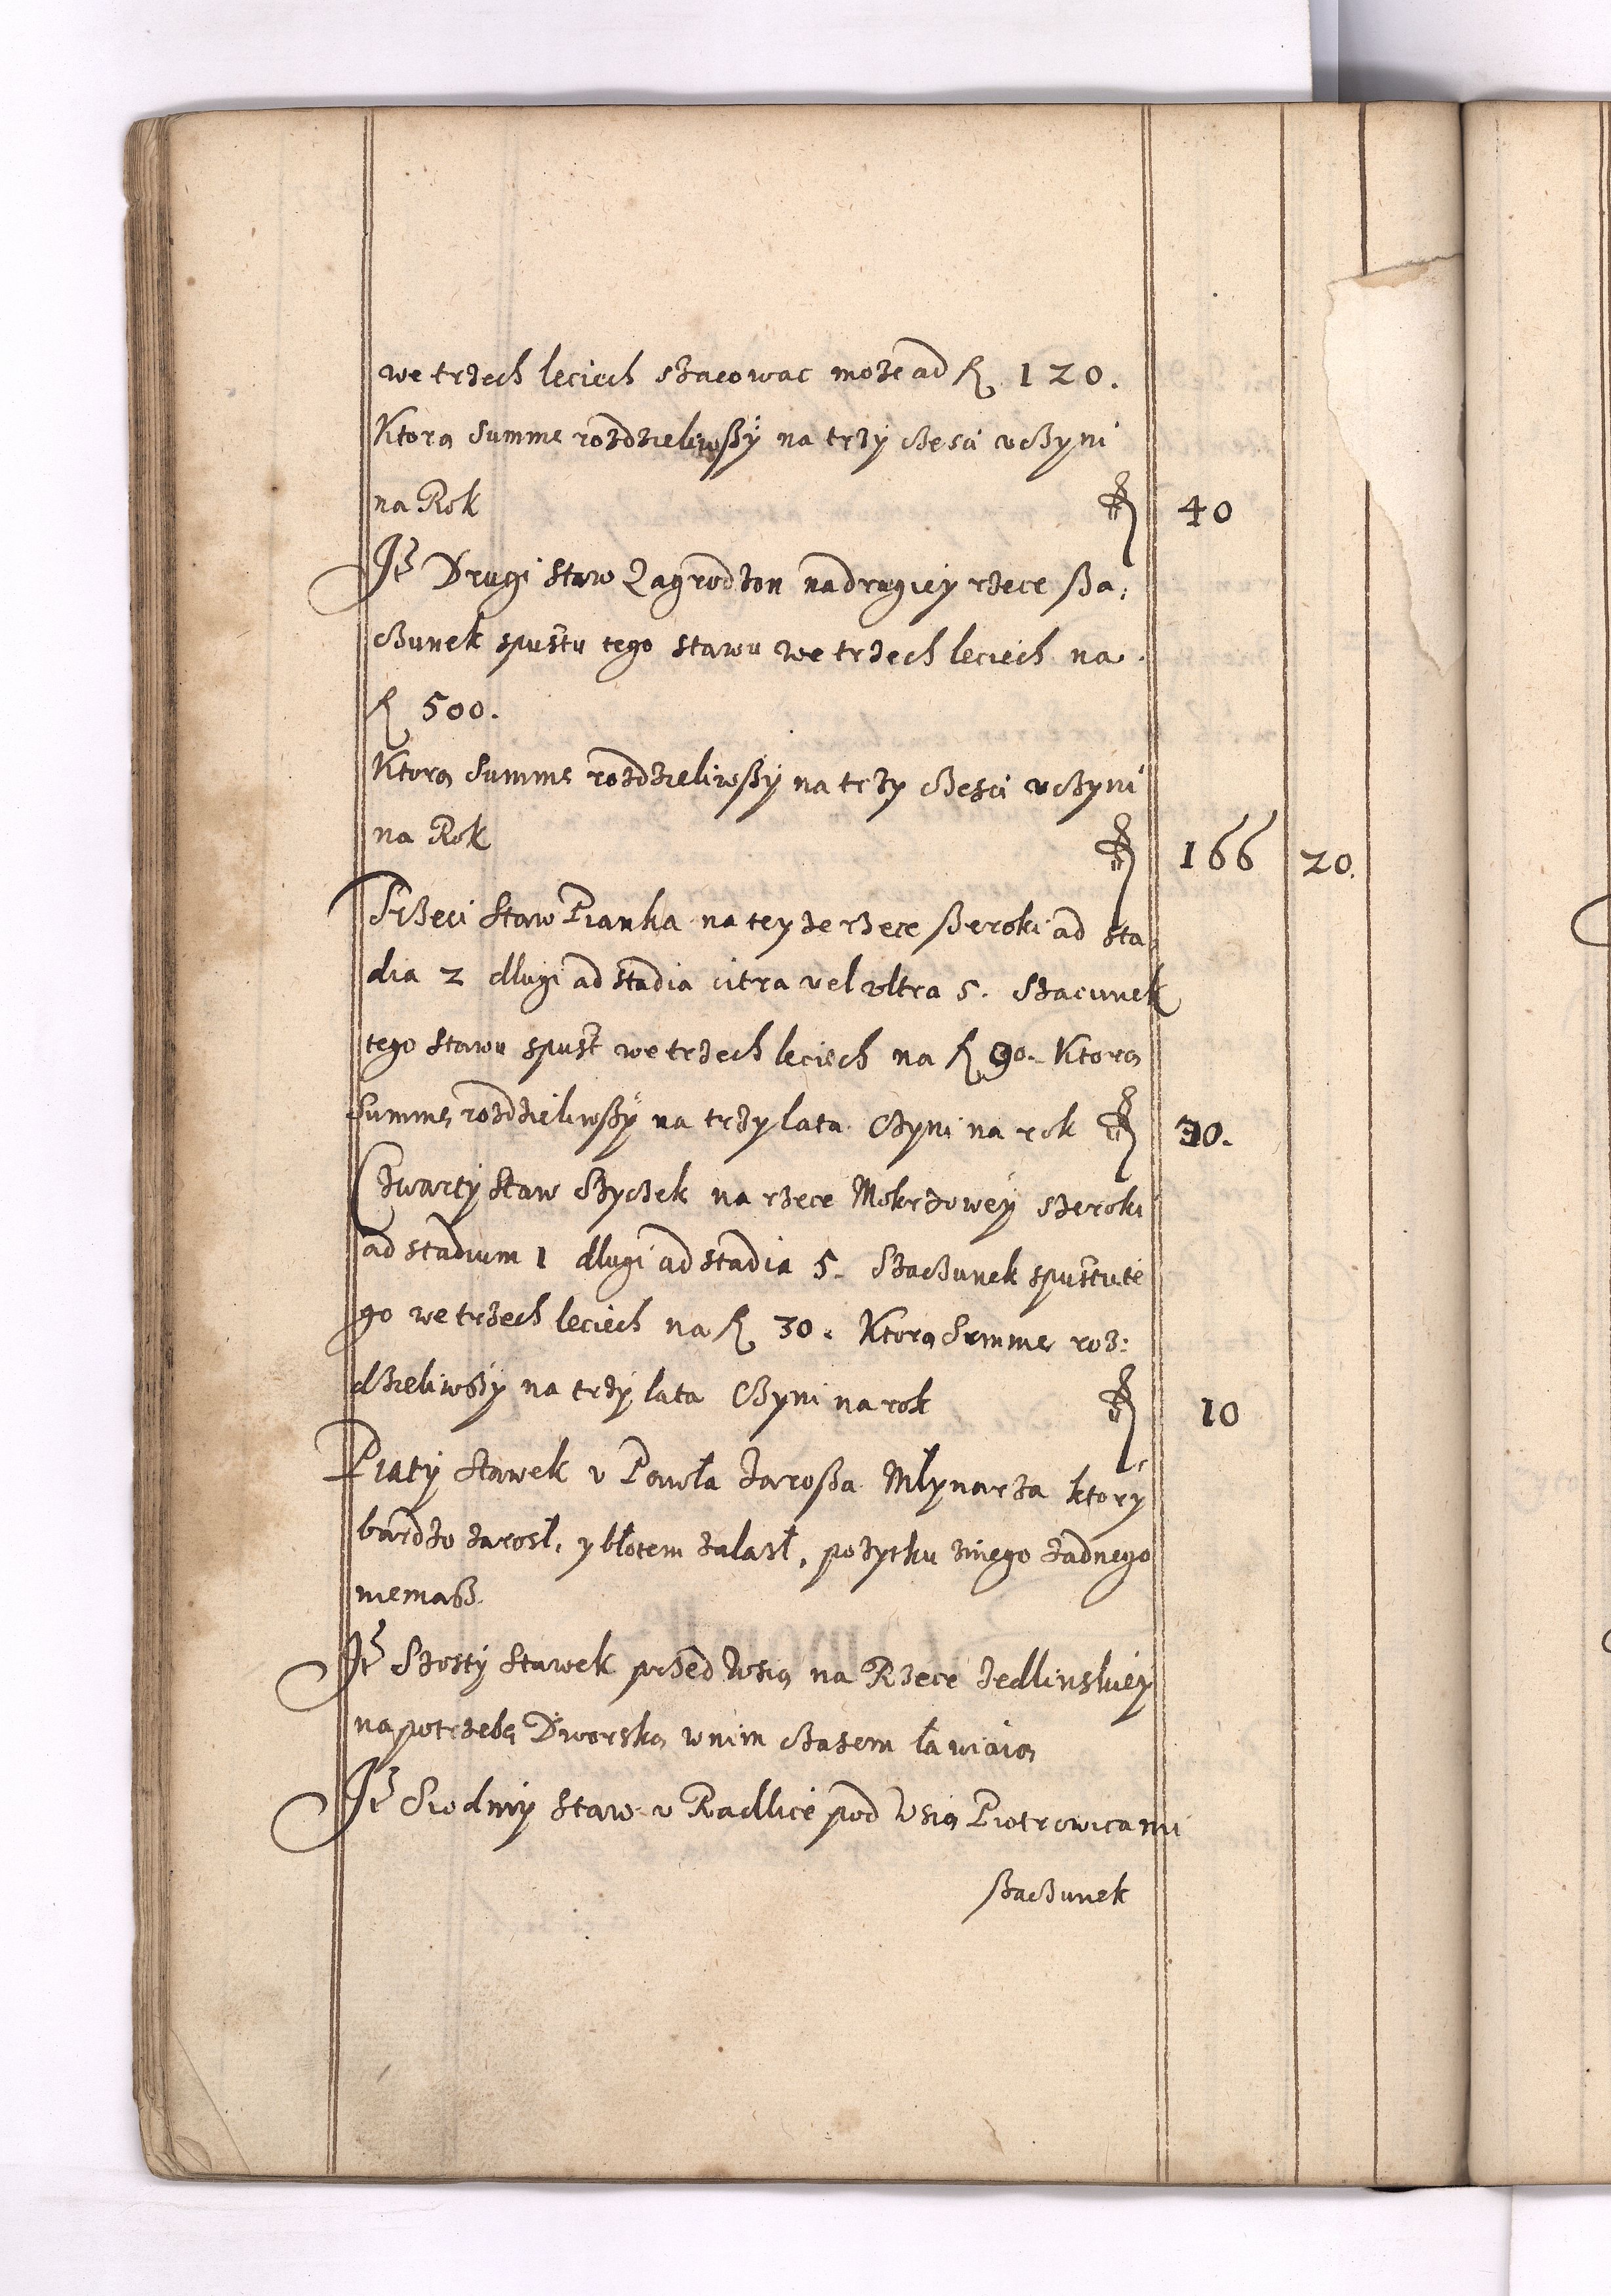 we trzech leciech szacowac może ad fl 120.
Ktorą Summę rozdzieliwszÿ na trzÿ częsci vczyni
na Rok fl 40
Itē Drugi Staw Zagrodzon na drugiey rzece sza:
czunek spustu tego stawu we trzech leciech na
fl 500.
Ktorą Summę rozdzieliwszÿ na trzy częsci vczyni
na Rok fl 166 20.
Trzeci Staw Pianka na teyże rzece szeroki ad sta
dia 2 dlugi ad stadia citra vel vltra 5. Szacunek
tego stawu spust we trzech leciech na fl 90. Ktorą
Summę rozdzieliwszÿ na trzy lata Czyni na rok fl 30.
Czwartÿ Staw Szyczek na rzece Mokrzowey szeroki
ad stadium 1 dlugi ad stadia 5. Szaczunek spustu te
go we trzech leciech na fl 30. Ktorą Summę roz:
dzieliwszÿ na trzÿ lata Czyni na rok fl 10
Piatÿ Stawek v Pawła Jarosza Młynarza ktorÿ
bardzo zarosł, y błotem zalazł, pożytku z niego żadnego
niemasz.
Itē Szostÿ Stawek przed Wsią na Rzece Jedlinskieÿ
na potrzebę Dworską w nim czasem ławiaią
Itē Siodmÿ Staw v Radlice pod Wsią Piotrowicami
szaczunek